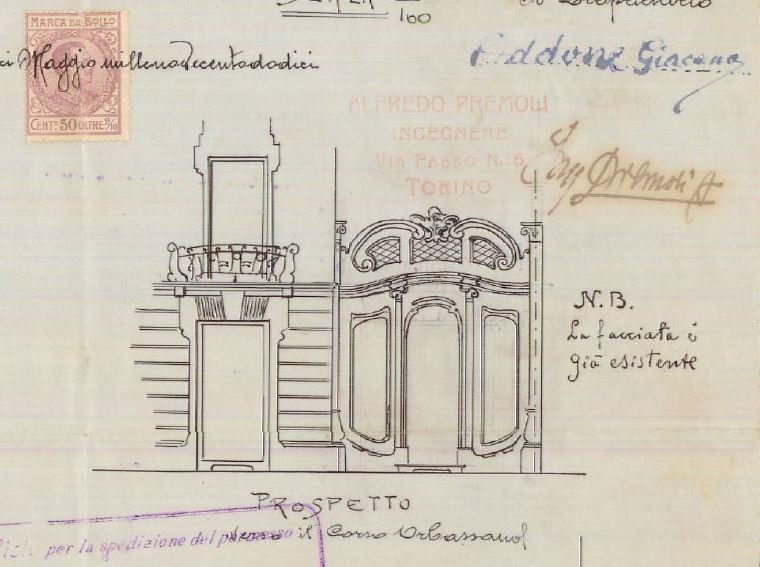 Il Proprietario
100
MARCA DA BOLLO
Maggio millenovecentododici
Addone Giacomo
CENT.MI 50 OLTRE 2/10
ALFREDO PREMOLI
INGEGNERE
VIA FABRO N. 6
TORINO
Ing Premoli A
N.B.
La facciata è
già esistente
PROSPETTO
verso il Corso Orbassano
per la spedizione del permesso